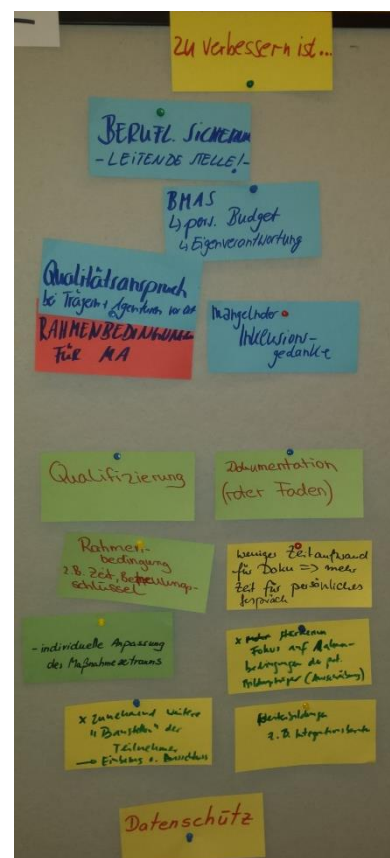 Zu verbessern ist...
BERUFL. SICHERUNG
- LEITENDE STELLE! -
BMAS
↳ pers. Budget
↳ Eigenverantwortung
Qualitätsanspruch
bei Trägern + Agenturen vor Ort
RAHMENBEDINGUNGEN
FÜR MA
Mangelnder
Inklusions-
gedanke
Qualifizierung
Dokumentation
(roter Faden)
Rahmen-
bedingung
z.B. Zeit, Betreuungs-
schlüssel
weniger Zeitaufwand
für Doku => mehr
Zeit für persönliches
Gespräch
- individuelle Anpassung
des Maßnahmezeitraums
x stärkeren
Fokus auf Rahmen-
bedingungen der
Bildungsträger (Ausschreibung)
x Zunehmend weitere
"Baustellen" der
Teilnehmer
→
Weiterbildungen
z.B. Integrationsberater
Datenschutz